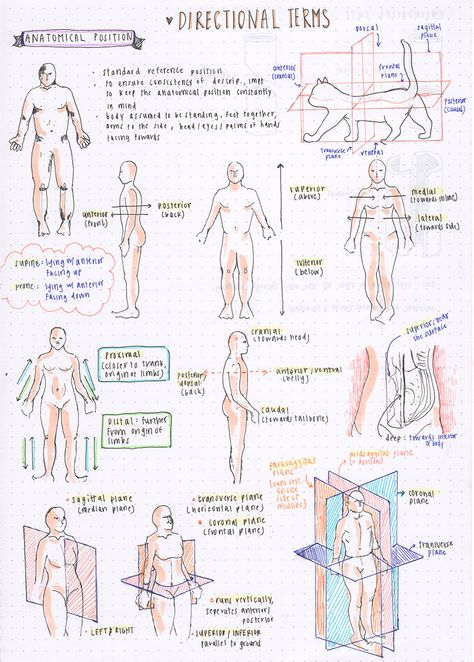 ♥ DIRECTIONAL TERMS
ANATOMICAL POSITION
• standard reference position
• to ensure consistency of descrip., impt
to keep the anatomical position constantly
in mind
• body assumed to be standing, feet together,
arms to the side, head/eyes/palms of hands
facing towards
dorsal
sagittal
plane
anterior
(cranial)
frontal
plane
posterior
(caudal)
transverse
plane
ventral
anterior
(front)
posterior
(back)
superior
(above)
inferior
(below)
medial
(towards midline)
lateral
(towards side)
supine: lying w/ anterior
facing up
prone: lying w/ anterior
facing down
Proximal
(closer to trunk,
origin of limbs)
Distal: further
from origin of
limbs
cranial
(towards head)
posterior
dorsal
(back)
anterior/ventral
(belly)
caudal
(towards tailbone)
superior: near
the surface
deep: towards interior
of body
• sagittal plane
(median plane)
• LEFT & RIGHT
• transverse plane
(horizontal plane)
• coronal plane
(frontal plane)
• runs vertically,
seperates anterior/
posterior
• SUPERIOR/INFERIOR
parallel to ground
parasaggital
plane
one
side of
midline)
midsaggital plane
coronal
plane
transverse
plane